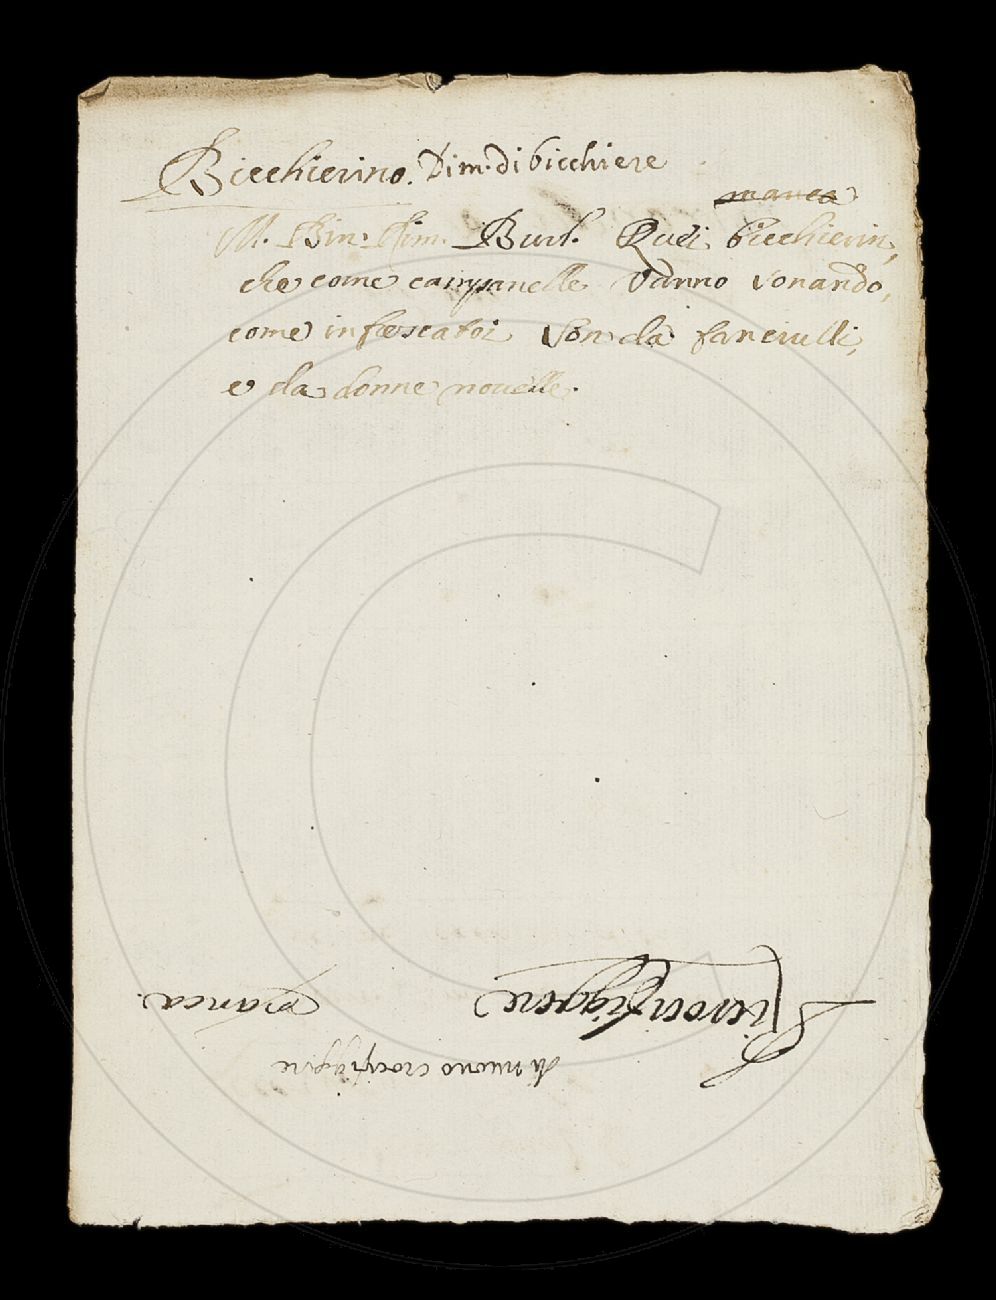 Bicchierino. Dim. di bicchiere
manca
M. Bin. Rim. Burl. Quei bicchierin,
che come campanelle Vanno sonando,
come infrescatoi Son da fanciulli,
e da donne novelle.
Ricrocifiggere
manca.
di nuovo crocifiggere